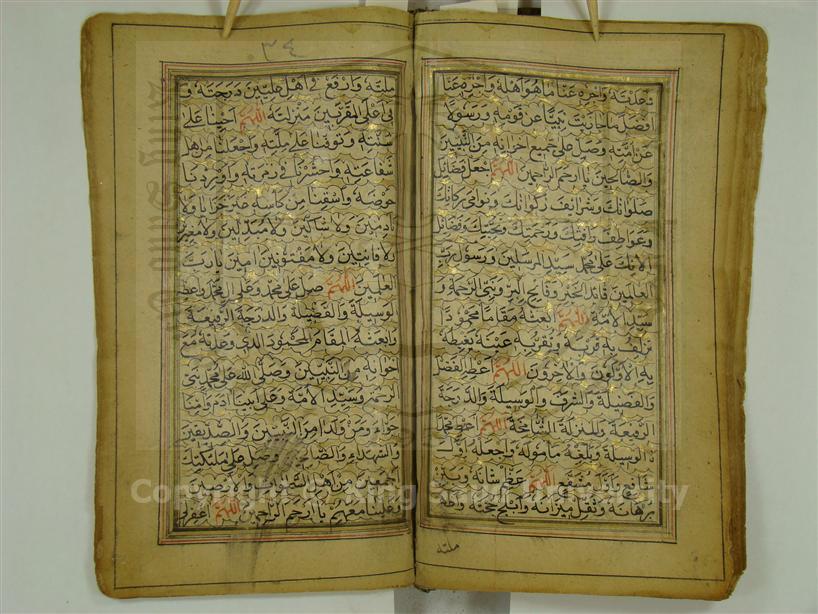 نحلته واجزه عنا ما هو اهله واجزه عنا
افضل ما جازيت نبيا عن قومه ورسولا
عن امته وصل على جميع اخوانه من النبيين
والصالحين يا ارحم الراحمين اللهم اجعل فضائل
صلواتك وشرائف زكواتك ونوامي بركاتك
وعواطف رافتك ورحمتك وتحيتك وفضائل
الائك على محمد سيد المرسلين ورسول رب
العلمين قائد الخير وفاتح البر ونبي الرحمة و
سيد الامة اللهم ابعثه مقاما محمودا
تزلف به قربه وتقر به عينه يغبطه
به الاولون والاخرون اللهم اعطه الفضل
والفضيلة والشرف والوسيلة والدرجة
الرفيعة والمنزلة الشامخة اللهم اعط محمدا
الوسيلة وبلغه مأموله واجعله اول
شافع واول مشفع اللهم عظم شانه وبين
برهانه وثقل ميزانه وابلج حجته واظهر
ملته
٣٤
ملته وارفع في اهل عليين درجته و
في اعلى المقربين منزلته اللهم احينا على
سنته وتوفنا على ملته واجعلنا من اهل
شفاعته واحشرنا في زمرته واوردنا
حوضه واسقنا من كاسه غير خزايا ولا
نادمين ولا شاكين ولا مبدلين ولا مغيرين
ولا فاتنين ولا مفتونين امين يا رب
العلمين اللهم صل على محمد وعلى ال محمد واعطه
الوسيلة والفضيلة والدرجة الرفيعة
وابعثه المقام المحمود الذي وعدته مع
اخوانه من النبيين وصلى الله على محمد نبي
الرحمة وسيد الامة وعلى ابينا ادم وامنا
حواء ومن ولدا من النبيين والصديقين
والشهداء والصالحين وصل على ملئكتك
اجمعين من اهل السموات والارضين
وعلينا معهم يا ارحم الراحمين اللهم اغفر لي
Copyright © King Saud University